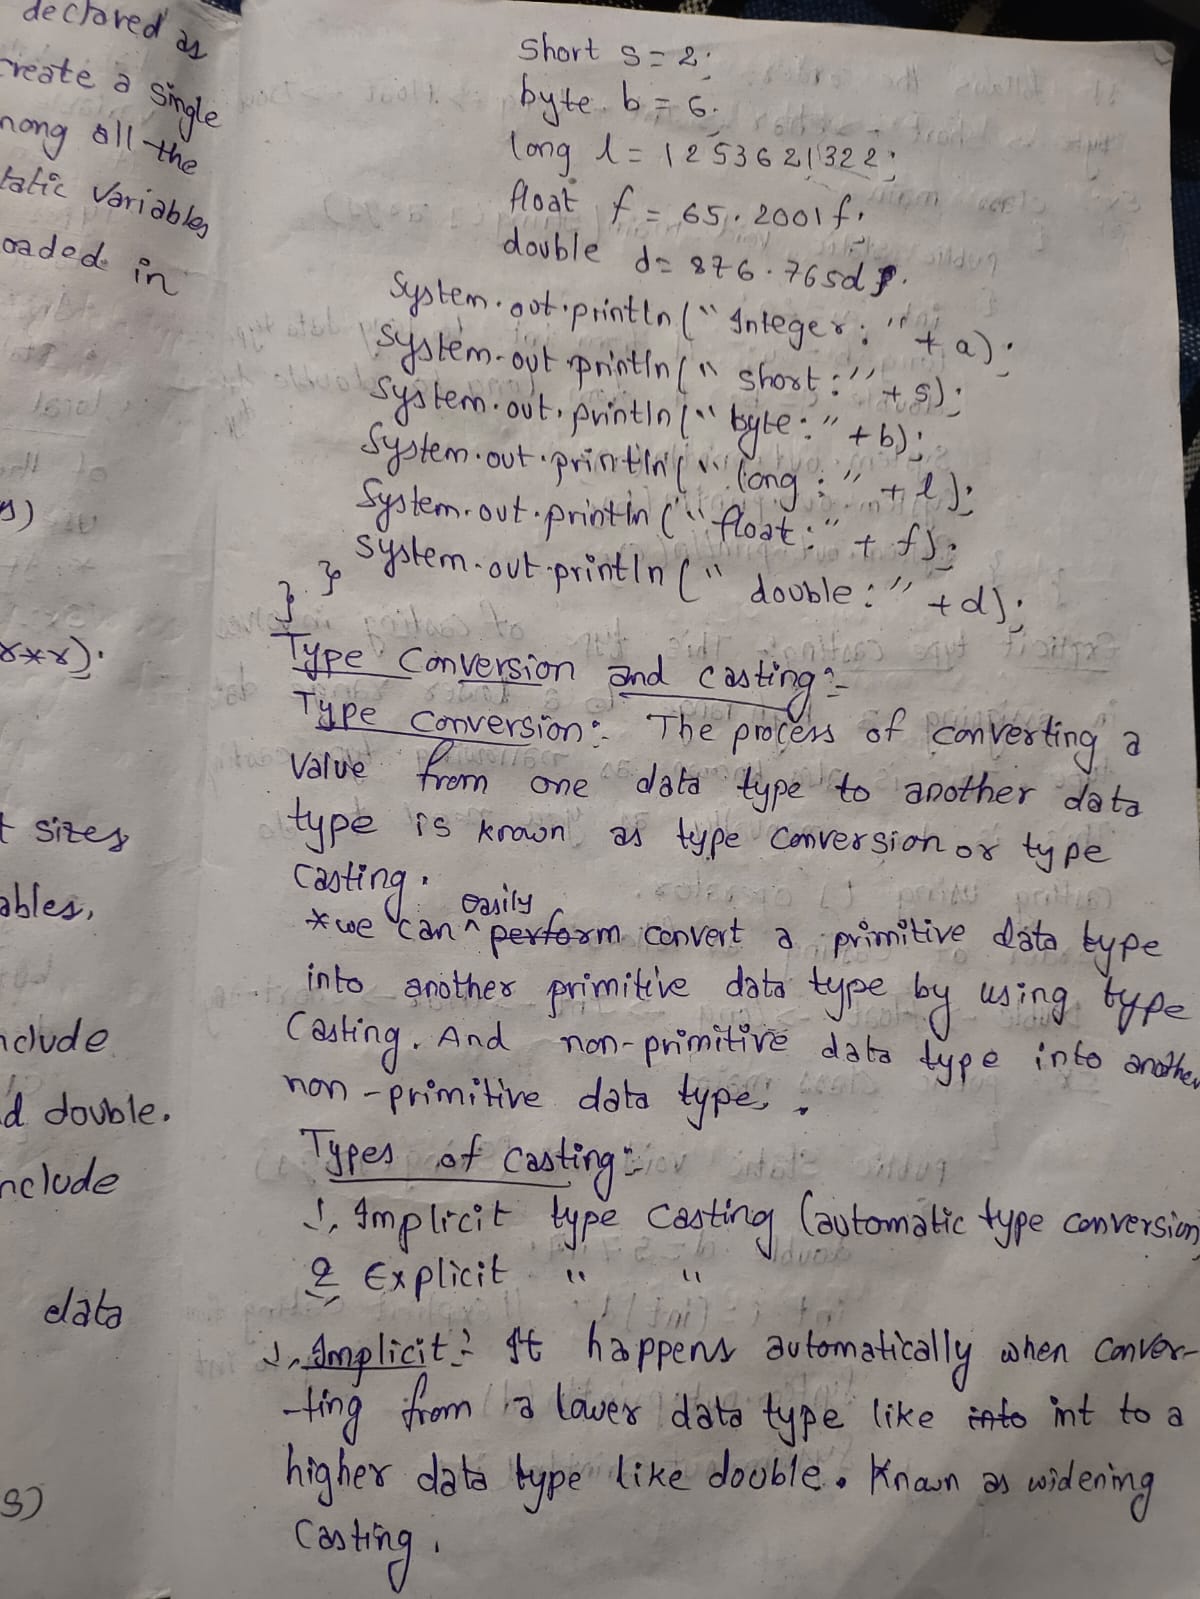 declared as
create a single
mong all the
tatic variables
oaded in
s)
r*r);
t sizes
ables,
nclude
d double.
nclude
data
s)
short s = 2;
byte b = 6;
long l = 1253621322;
float f = 65.2001f;
double d = 876.765d;
System.out.println("Integer:" + a);
System.out.println("short:" + s);
System.out.println("byte:" + b);
System.out.println("long:" + l);
System.out.println("float:" + f);
System.out.println("double:" + d);
} }
Type Conversion and casting:-
Type conversion:- The process of converting a
value from one data type to another data
type is known as type conversion or type
casting.
*we can ^easily perform convert a primitive data type
into another primitive data type by using type
Casting. And non-primitive data type into another
non-primitive data type.
Types of casting:-
1. Implicit type casting (automatic type conversion)
2 Explicit " "
1. Implicit:- It happens automatically when conver-
-ting from a lower data type like into int to a
higher data type like double. Known as widening
Casting.